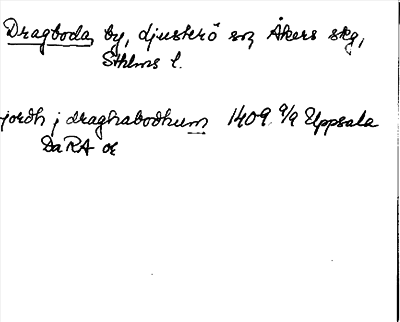 Dragboda, by, Djursrö sn, Åkers skg,
Sthlms l.
jordh j draghabodhum 1409 9/9 Uppsala
DaRA or